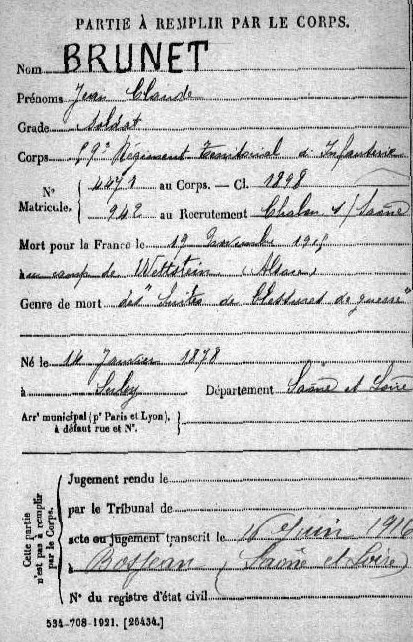 PARTIE À REMPLIR PAR LE CORPS.
Nom BRUNET
Prénoms Jean Claude
Grade Soldat
Corps 59e Régiment Territorial d'Infanterie
N° Matricule. 4471 au Corps. — Cl. 1898
942 au Recrutement Chalon s/ Saône
Mort pour la France le 12 1915
à au camp de Wettstein (Alsace)
Genre de mort des "suites de blessures de guerre"
Né le 14 Janvier 1878
à Département Saône et Loire
Arrt municipal (pr Paris et Lyon), à défaut rue et N°.
Cette partie n'est pas à remplir par le Corps.
Jugement rendu le
par le Tribunal de
acte ou jugement transcrit le Juin 1916
à Bosjean (Saône et Loire)
N° du registre d'état civil
534-708-1921. [26434.]